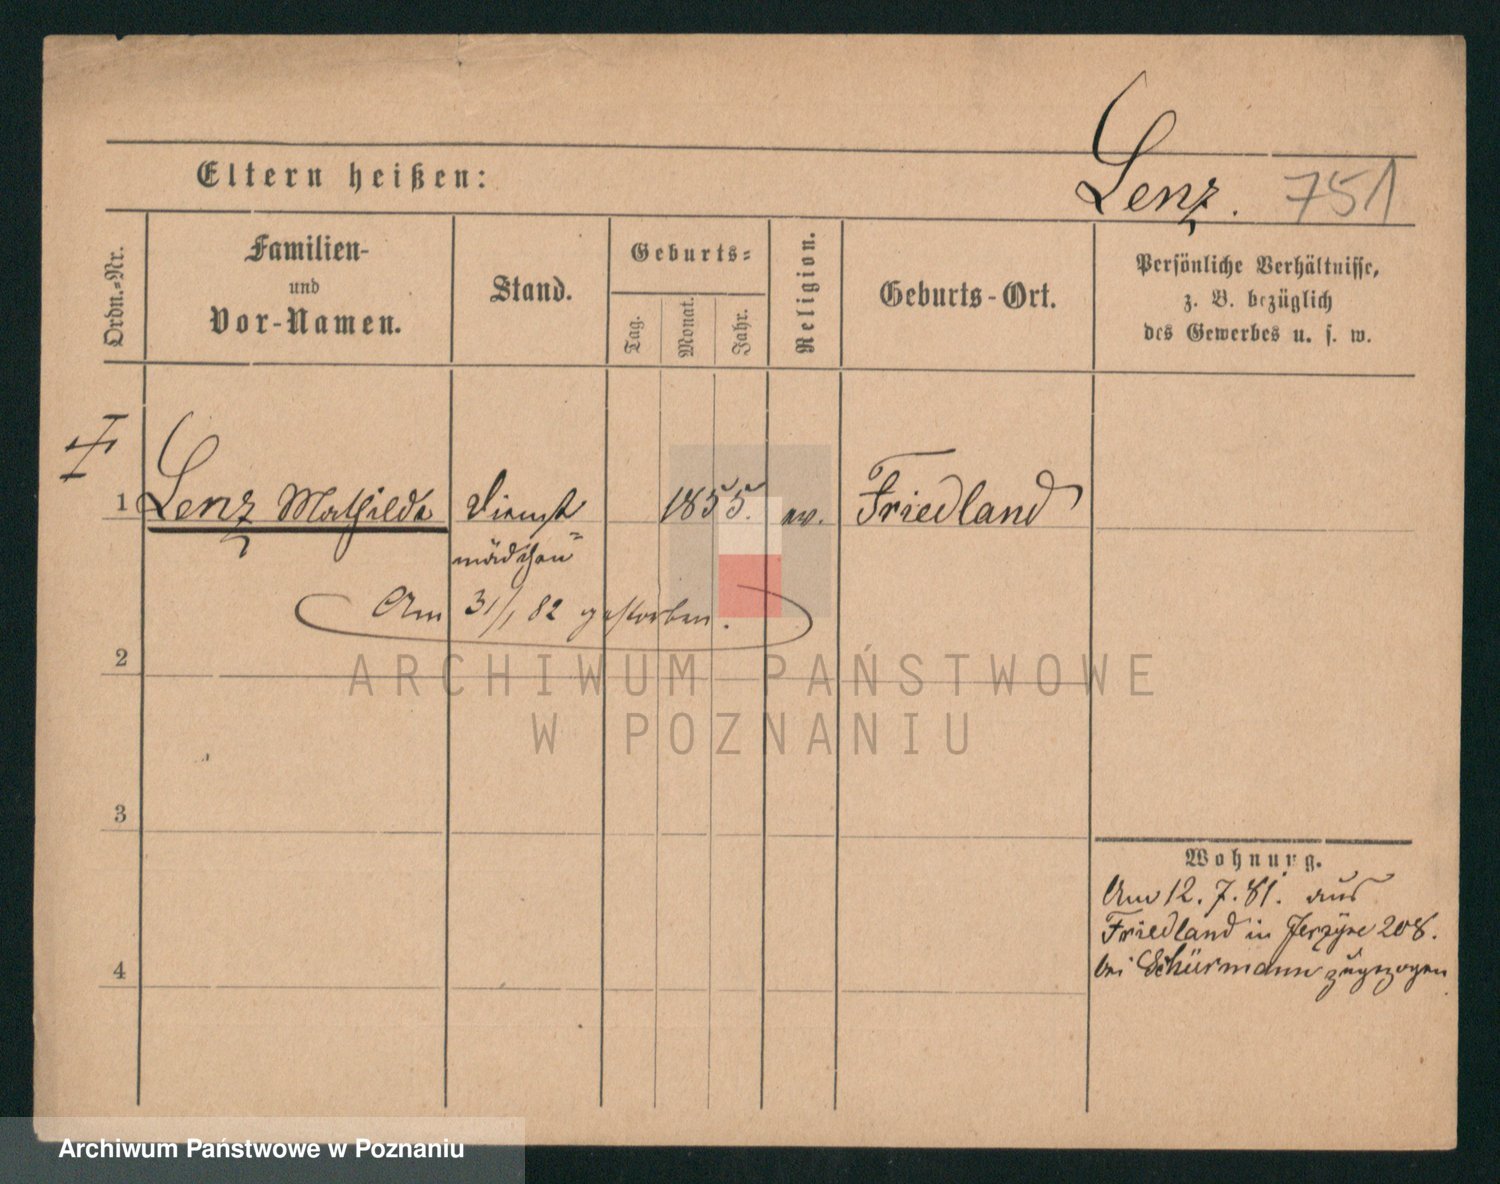 Lenz. 751
Eltern heißen:
Ordn.-Nr.
Familien-
und
Vor-Namen.
Stand.
Geburts-
Tag.
Monat.
Jahr.
Religion.
Geburts-Ort.
Persönliche Verhältnisse,
z. B. bezüglich
des Gewerbes u. s. w.
1 Lenz Mathilde Dienst 1855. ev. Friedland
mädchen
Am 31/1 82 gestorben.
2
ARCHIWUM PAŃSTWOWE
W POZNANIU
3
Wohnung.
Am 12. 7. 81. aus
Friedland in Jerzyce 208.
4
bei Schürmann zugezogen
Archiwum Państwowe w Poznaniu